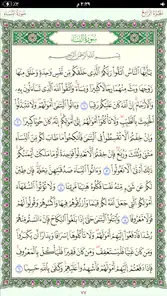 ٢:٣٩ م
سُورَةُ النِّسَاءِ
الجُزْءُ الرَّابِعُ
سُورَةُ النِّسَاءِ
بِسْمِ اللَّهِ الرَّحْمَٰنِ الرَّحِيمِ
يَٰٓأَيُّهَا النَّاسُ اتَّقُوا رَبَّكُمُ الَّذِي خَلَقَكُم مِّن نَّفْسٍ وَٰحِدَةٍ وَخَلَقَ مِنْهَا
زَوْجَهَا وَبَثَّ مِنْهُمَا رِجَالًا كَثِيرًا وَنِسَآءً وَاتَّقُوا اللَّهَ الَّذِي تَسَآءَلُونَ
بِهِ وَالْأَرْحَامَ إِنَّ اللَّهَ كَانَ عَلَيْكُمْ رَقِيبًا ١ وَءَاتُوا الْيَتَٰمَىٰٓ أَمْوَٰلَهُمْ
وَلَا تَتَبَدَّلُوا الْخَبِيثَ بِالطَّيِّبِ وَلَا تَأْكُلُوٓا أَمْوَٰلَهُمْ إِلَىٰٓ أَمْوَٰلِكُمْ إِنَّهُ كَانَ حُوبًا كَبِيرًا
٢ وَإِنْ خِفْتُمْ أَلَّا تُقْسِطُوا فِي الْيَتَٰمَىٰ فَانكِحُوا مَا طَابَ لَكُم مِّنَ النِّسَآءِ
مَثْنَىٰ وَثُلَٰثَ وَرُبَٰعَ فَإِنْ خِفْتُمْ أَلَّا تَعْدِلُوا فَوَٰحِدَةً أَوْ مَا مَلَكَتْ
أَيْمَٰنُكُمْ ذَٰلِكَ أَدْنَىٰٓ أَلَّا تَعُولُوا ٣ وَءَاتُوا النِّسَآءَ صَدُقَٰتِهِنَّ نِحْلَةً
فَإِن طِبْنَ لَكُمْ عَن شَيْءٍ مِّنْهُ نَفْسًا فَكُلُوهُ هَنِيٓـًٔا مَّرِيٓـًٔا ٤ وَلَا تُؤْتُوا
السُّفَهَآءَ أَمْوَٰلَكُمُ الَّتِي جَعَلَ اللَّهُ لَكُمْ قِيَٰمًا وَارْزُقُوهُمْ فِيهَا
وَاكْسُوهُمْ وَقُولُوا لَهُمْ قَوْلًا مَّعْرُوفًا ٥ وَابْتَلُوا الْيَتَٰمَىٰ حَتَّىٰٓ إِذَا بَلَغُوا
النِّكَاحَ فَإِنْ ءَانَسْتُم مِّنْهُمْ رُشْدًا فَادْفَعُوٓا إِلَيْهِمْ أَمْوَٰلَهُمْ
وَلَا تَأْكُلُوهَآ إِسْرَافًا وَبِدَارًا أَن يَكْبَرُوا وَمَن كَانَ غَنِيًّا
فَلْيَسْتَعْفِفْ وَمَن كَانَ فَقِيرًا فَلْيَأْكُلْ بِالْمَعْرُوفِ فَإِذَا دَفَعْتُمْ
إِلَيْهِمْ أَمْوَٰلَهُمْ فَأَشْهِدُوا عَلَيْهِمْ وَكَفَىٰ بِاللَّهِ حَسِيبًا ٦
٧٧